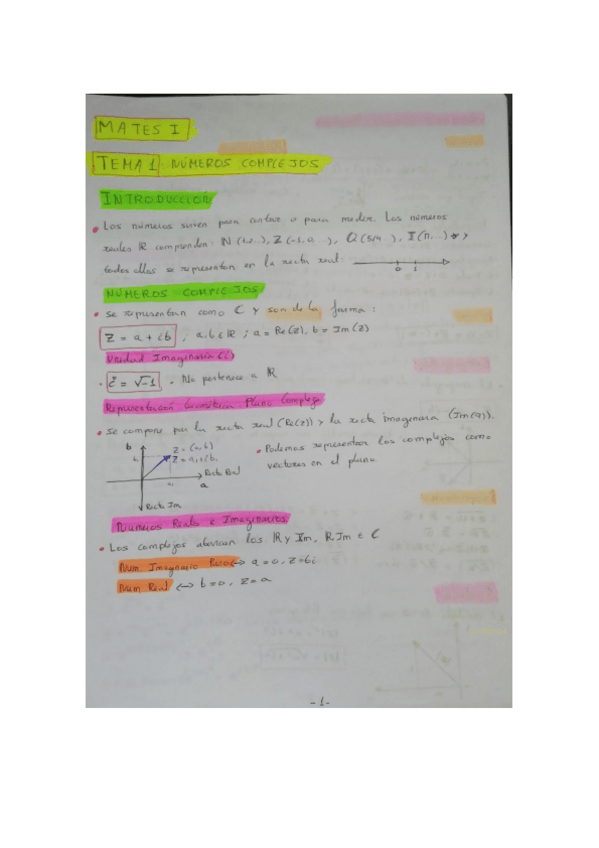 MATES I
TEMA 1 NÚMEROS COMPLEJOS
INTRODUCCIÓN
• Los números sirven para contar o para medir. Los números
reales ℝ comprenden: N (1,2...), Z (-1,0 ...), Q (5/4 ...), I (π,...) y
todos ellos se representan en la recta real.
0 1
NÚMEROS COMPLEJOS
• Se representan como C y son de la forma:
Z = a + ib , a,b ∈ ℝ ; a = Re(z), b = Im(z)
Unidad Imaginaria (i)
• i = √-1 • No pertenece a ℝ
Representación Geométrica Plano Complejo
• Se compone por la recta real (Re(z)) y la recta imaginaria (Im(z)).
b
Z = (a,b)
Z = a+ib
b
→ Recta Real
a
Recta Im
• Podemos representar los complejos como
vectores en el plano
Números Reales e Imaginarios
• Los complejos abarcan los ℝ y Im. ℝ, Im ∈ C
Num. Imaginario Puro ⟷ a = 0, Z = bi
Num Real ⟷ b = 0, Z = a
-1-